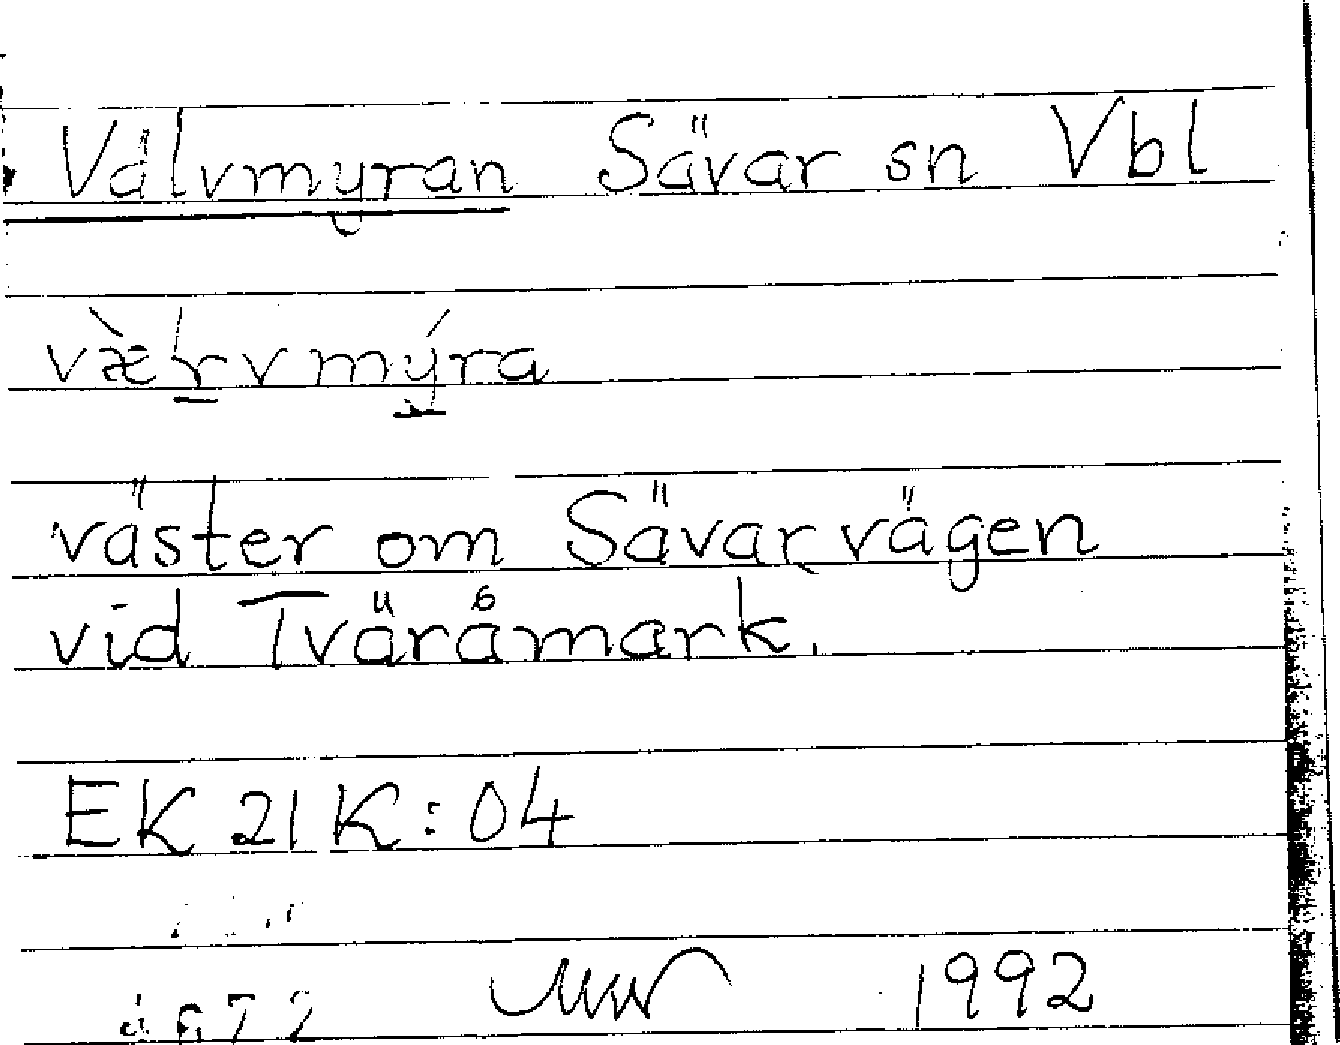 Välvmyran Sävar sn Vbl
væ̀rvmýra
väster om Sävarvägen
vid Tväråmark.
EK 21K:04
1992